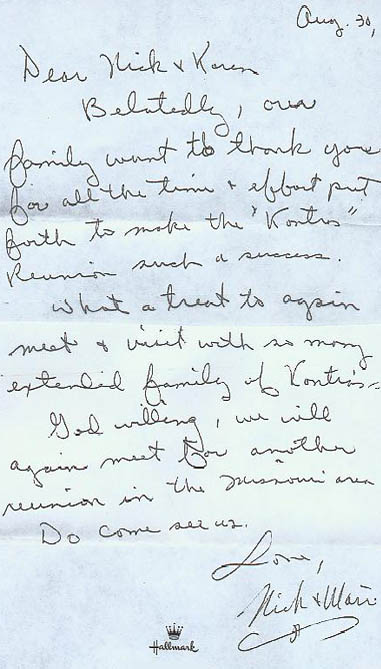 Aug. 30,
Dear Nick & Karen
Belatedly, our
family want to thank you
for all the time & effort put
forth to make the "Kontris"
Reunion such a success.
What a treat to again
meet & visit with so many
extended family of Kontris's
God willing, we will
again meet for another
reunion in the Missouri area
Do come see us.
Love,
Nick &
Hallmark